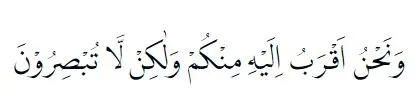 وَنَحْنُ اَقْرَبُ اِلَيْهِ مِنْكُمْ وَلٰكِنْ لَّا تُبْصِرُوْنَ